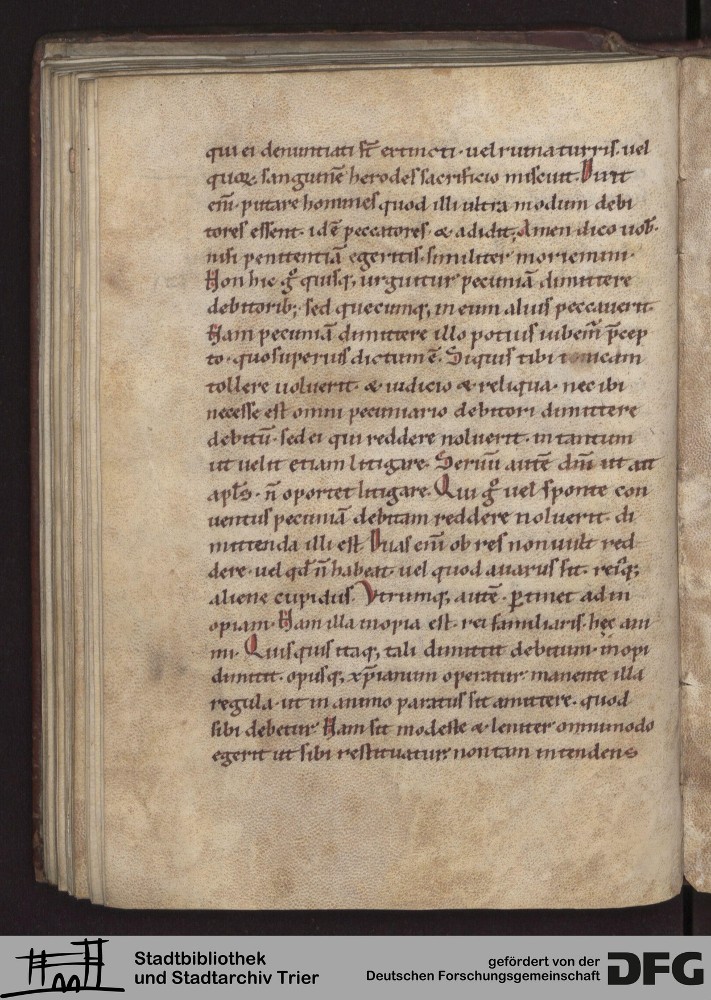 qui ei denuntiati st̄ extincti · uel ruina turris · uel
quoꝝ sanguinē herodes sacrificio miscuit. Nolite
eni̅ putare homines quod illi ultra modum debi
tores essent · idē peccatores · & adidit, Amen dico uob̅ ·
nisi penitentiā egeritis · similiter moriemini ·
Non hic gͦ quisq; urguitur pecuniā dimittere
debitorib; sed quecumq; in eum aluis peccauerit ·
Nam pecuniā dimittere illo potius iubem̅ p̅cep
to · quo superius dictum ē. Siquis tibi tunicam
tollere uoluerit · & iudicio & reliqua · nec ibi
necesse est omni pecuniario debitori dimittere
debitū · sed ei qui reddere noluerit · intantum
ut uelit etiam litigare. Seruū autē dn̅i ut ait
apl̅s · n̄ oportet litigare. Qui gͦ uel sponte con
uentus pecuniā debitam reddere noluerit · di
mittenda illi est. Duas eni̅ ob res non uult red
dere · uel qd̅ n̄ habeat · uel quod auarus sit · reiq;
aliene cupidus. Vtrumq; autē · ꝑtinet ad in
opiam · Nam illa inopia est · rei familiaris · hęc ani
mi · Quisquis itaq; tali dimittit debitum · inopi
dimittit · opusq; xp̅ianum operatur manente illa
regula · ut in animo paratus sit amittere · quod
sibi debetur. Nam sit modeste & leniter omnimodo
egerit ut sibi restituatur non tam intendens
Stadtbibliothek
und Stadtarchiv Trier
gefördert von der
Deutschen Forschungsgemeinschaft
DFG